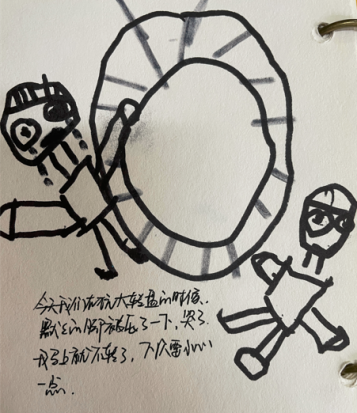 今天我们在玩大转盘的时候,
的脚被压了一下,哭了.
我马上就不转了,下次要小心
一点.